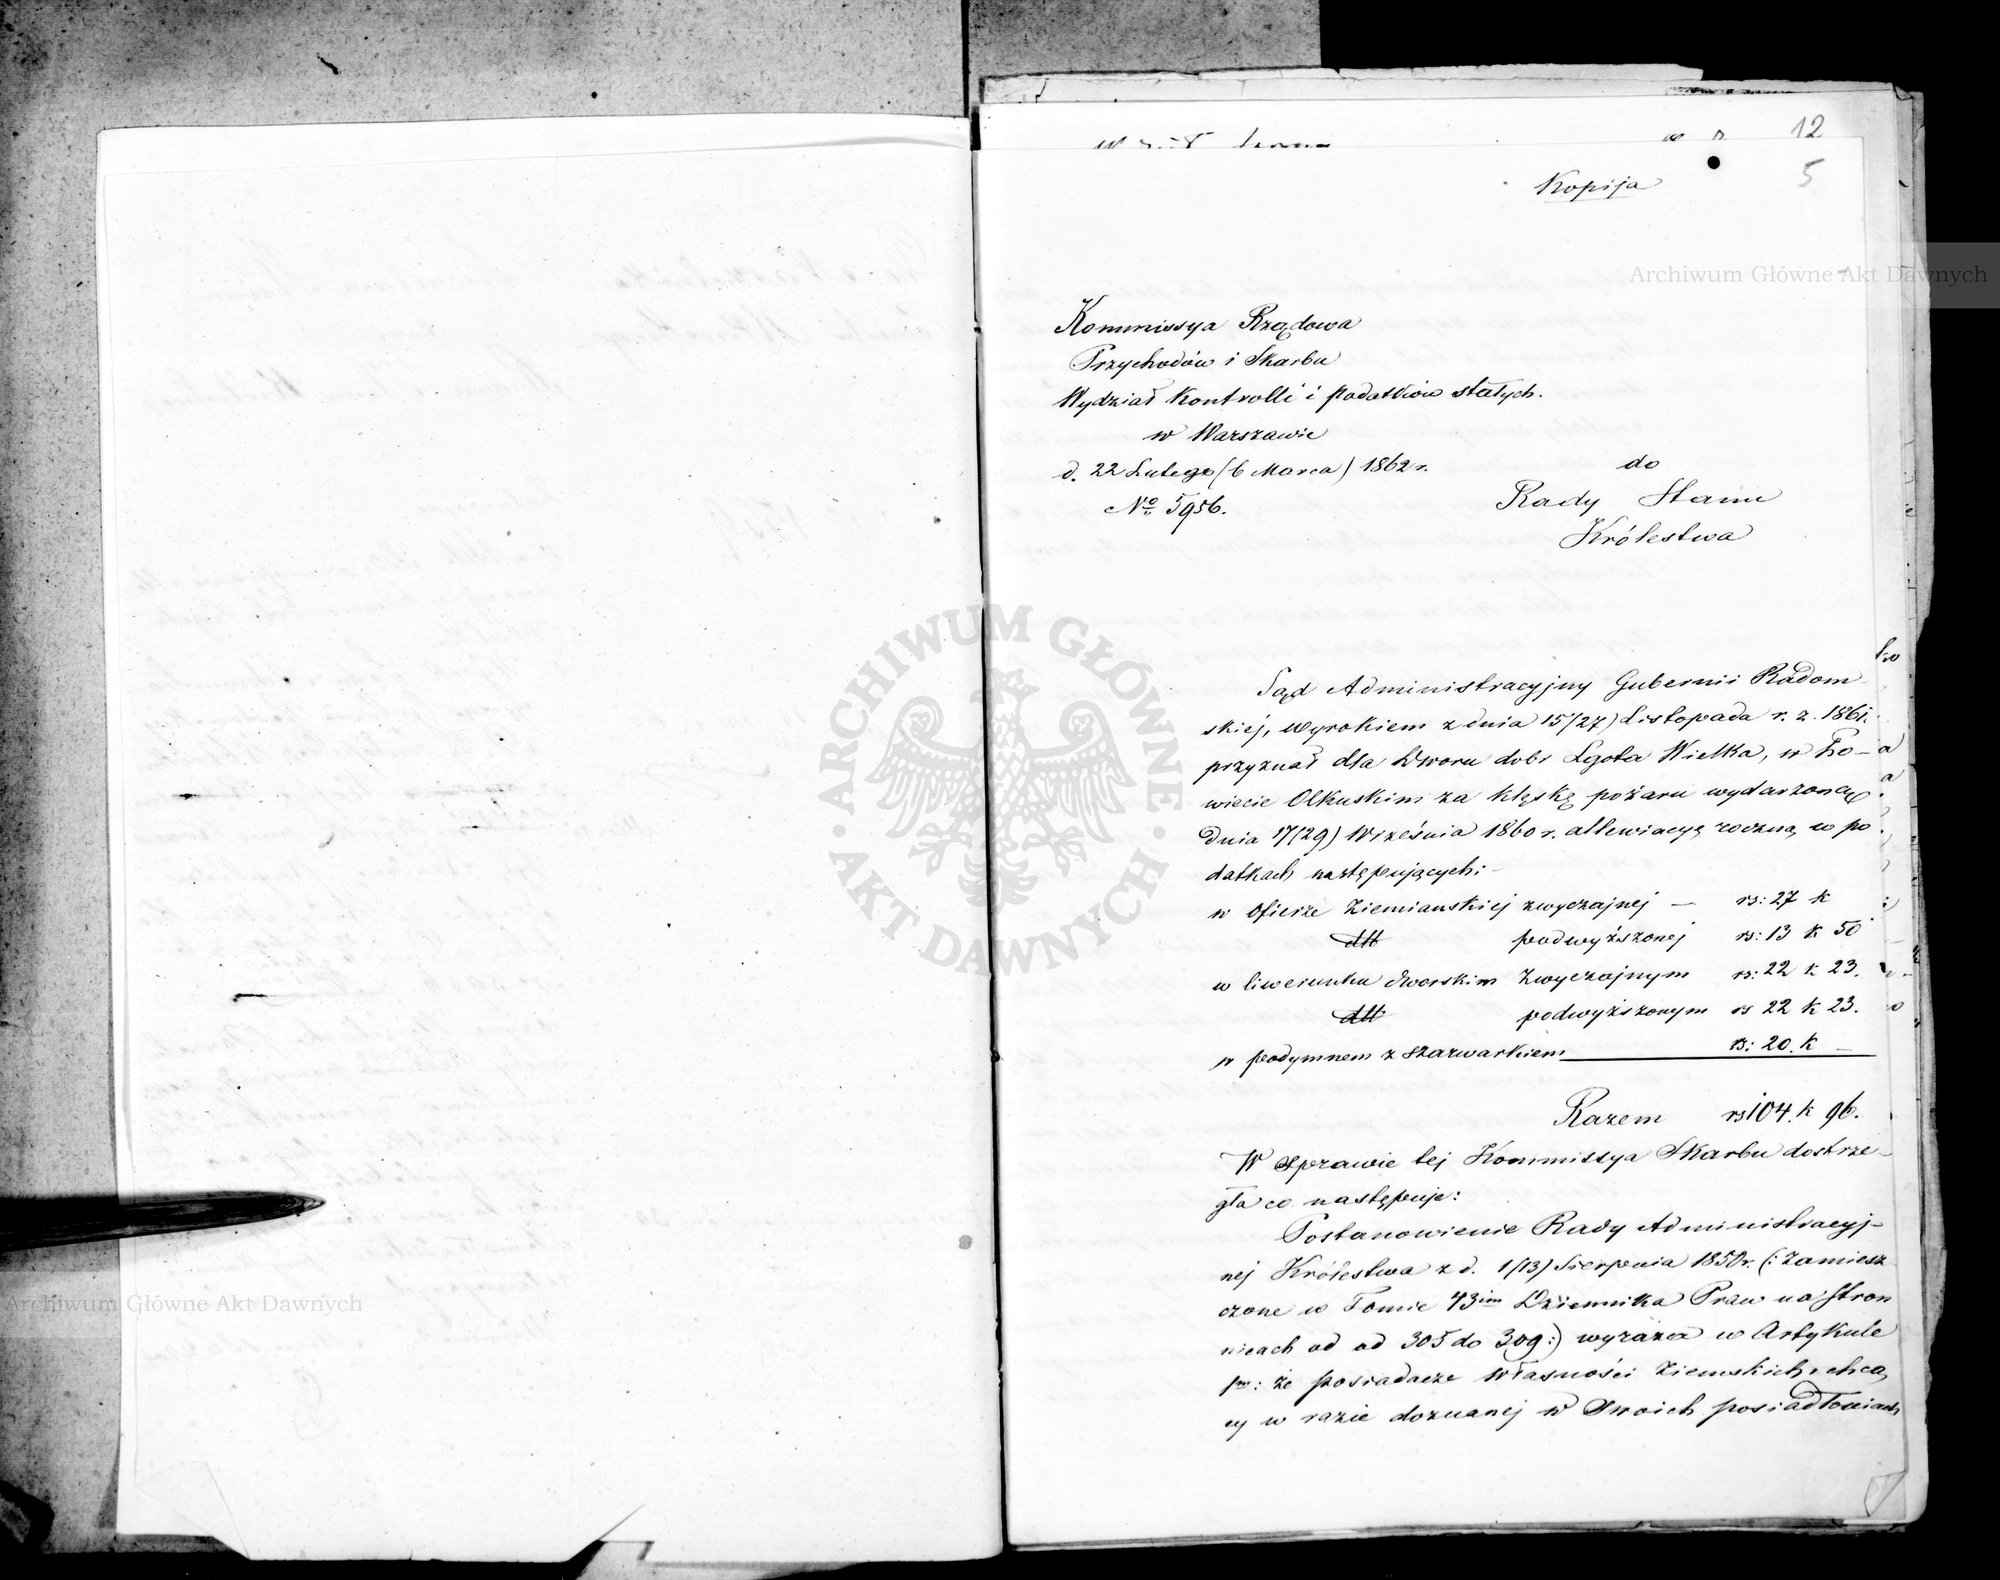 12
5
Kopija
Kommissya Rządowa
Przychodów i Skarbu
Wydział Kontrolli i podatków stałych.
w Warszawie
d. 22 Lutego (6 Marca) 1862 r.
No 5956.
do
Rady Stanu
Królestwa
Sąd Administracyjny Gubernii Radom
skiéj, wyrokiem z dnia 15/27) Listopada r. z. 1861.
przyznał dla Dworu dobr Lgota Wielka, w Po-
wiecie Olkuskim za klęskę pożaru wydarzoną
dnia 17(29) Września 1860 r. allewiacyą roczną w po
datkach następujących:
w Ofierze Ziemiańskiej zwyczajnej — rs: 27 k
dtt podwyższonej rs: 13 k 50
w liwerunku dworskim zwyczajnym rs: 22 k 23.
dtt podwyższonym rs 22 k 23.
w podymnem z szarwarkiem rs: 20. k —
Razem rs 104. k 96.
W sprawie tej Kommissya Skarbu dostrze-
gła co następuje:
Postanowienie Rady Administracyj-
nej Królestwa z d. 1/13) Sierpnia 1850 r. (: zamiesz
czone w Tomie 43im Dziennika Praw na stron
nicach od od 305 do 309:) wyraża w Artykule
1m: że posiadacze własności ziemskich, chcą
cy w razie doznanej w swoich posiadłościach
Archiwum Główne Akt Dawnych
ARCHIWUM GŁÓWNE
AKT DAWNYCH
Archiwum Główne Akt Dawnych